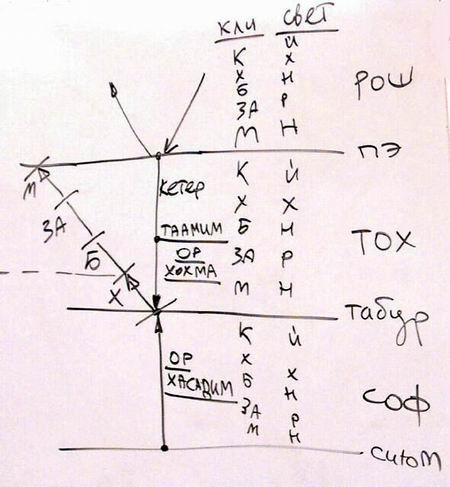 КЛИ СВЕТ
К Й
Х Х
Б Н
ЗА Р
М Н
РОШ
ПЭ
М
ЗА
Б
Х
КЕТЕР
ТААМИМ
ОР
ХОХМА
К Й
Х Х
Б Н
ЗА Р
М Н
ТОХ
табур
ОР
ХАСАДИМ
К Й
Х Х
Б Н
ЗА Р
М Н
СОФ
сиюм